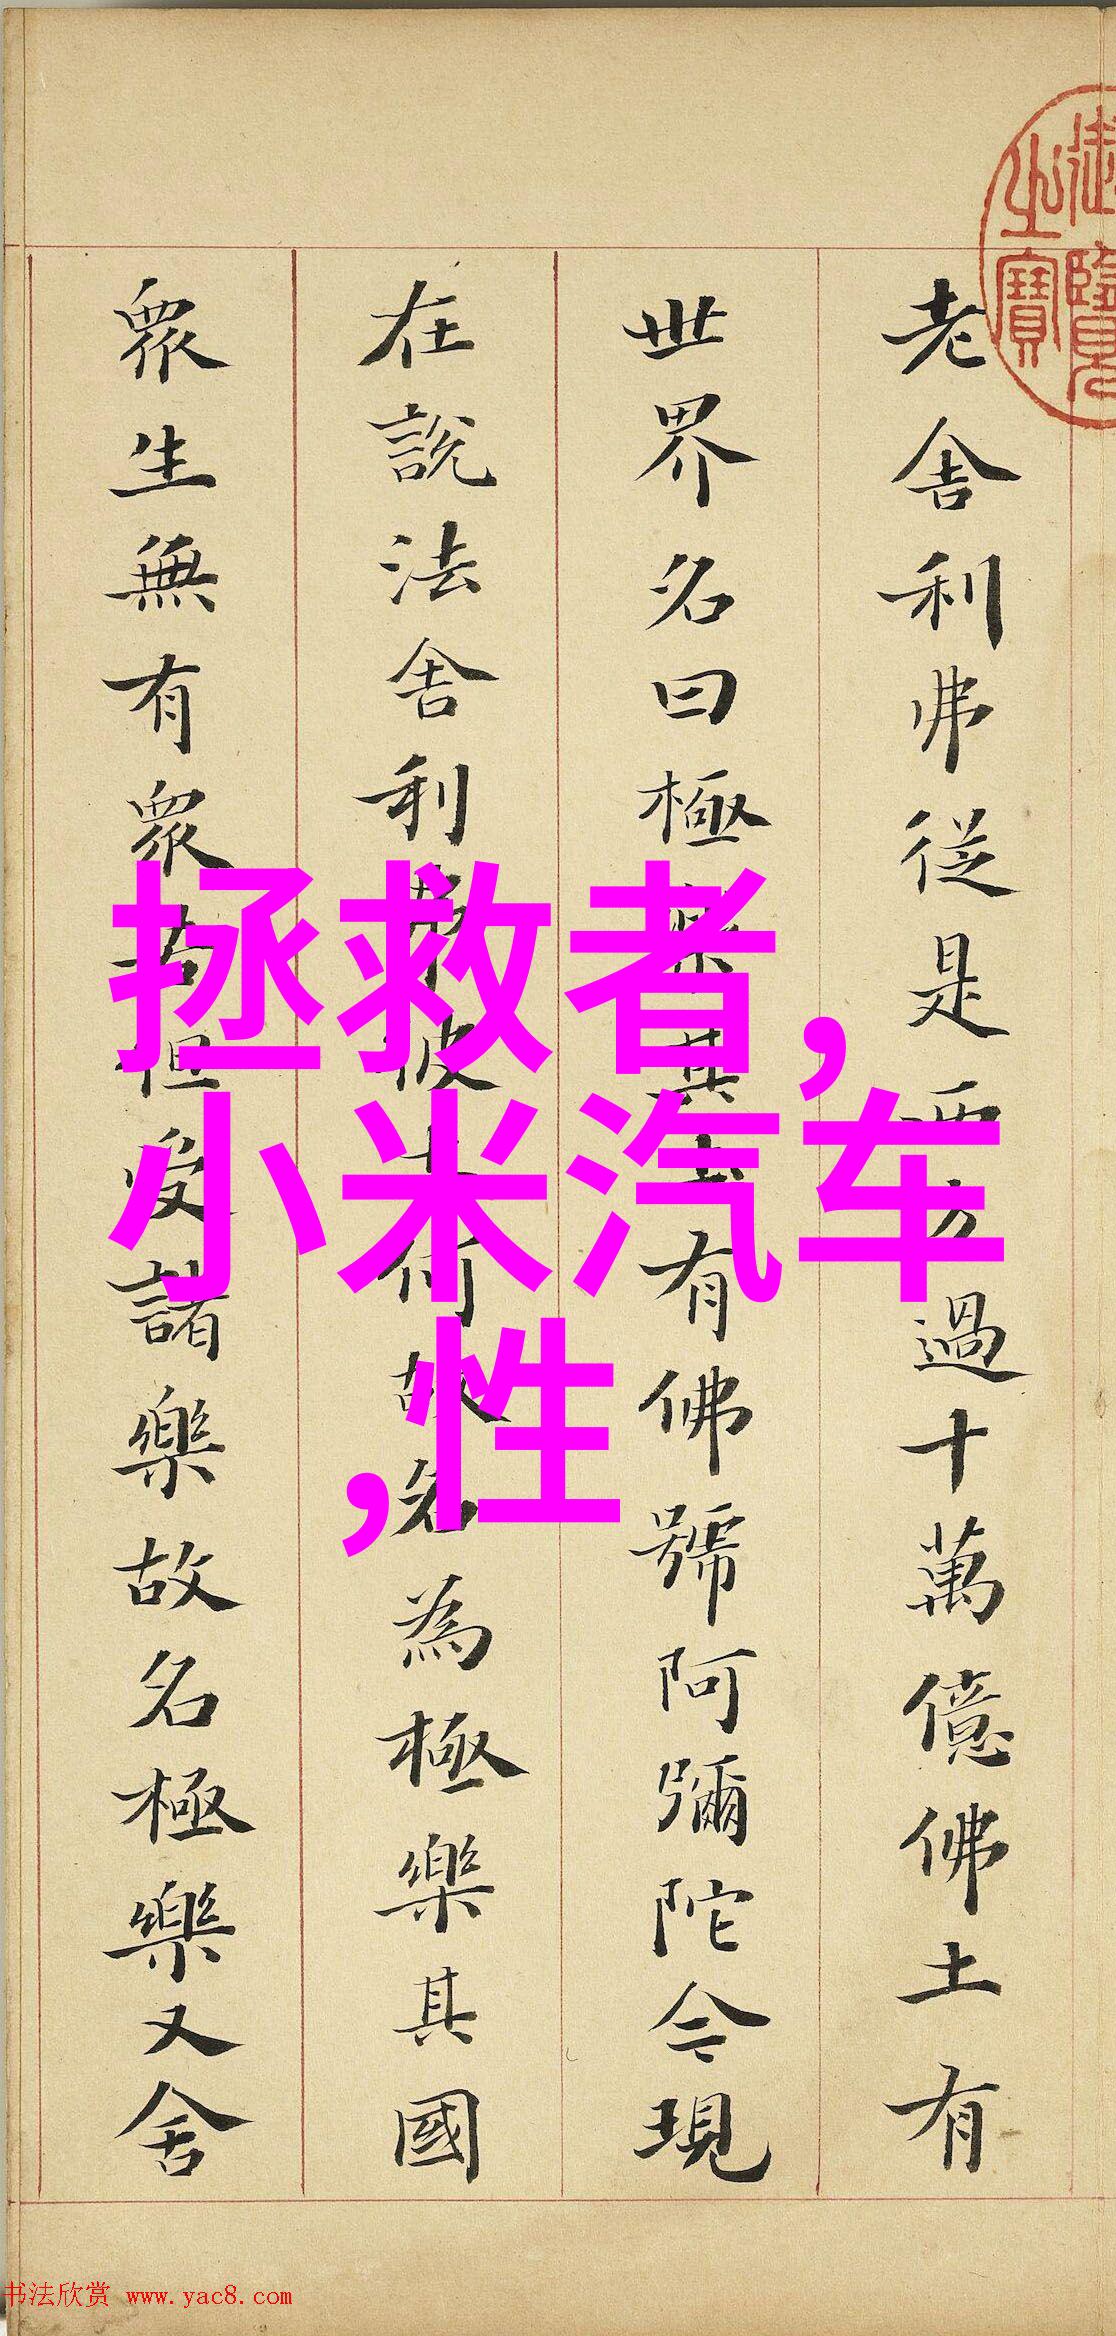 御覽
之寶
老舍利弗從是西方過十萬億佛土有
世界名曰極樂其土有佛號阿彌陀今現
在說法舍利弗彼土何故名為極樂其國
眾生無有眾苦但受諸樂故名極樂又舍
拯救者,
小米汽车
,性
书法欣赏 www.yac8.com